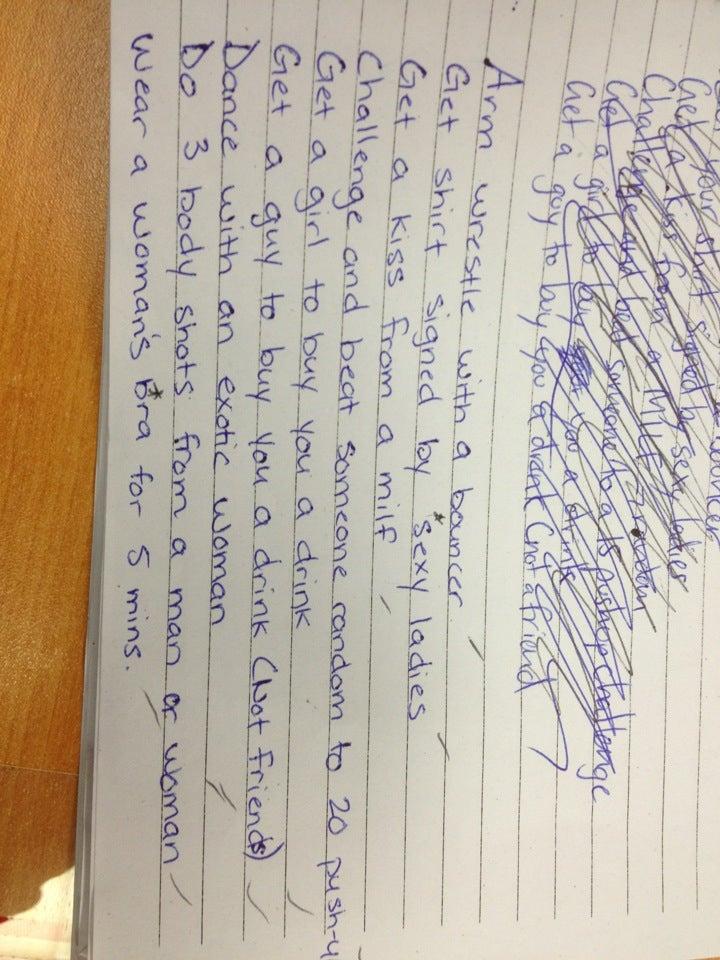 Get your shirt signed by sexy ladies
Get a kiss from a MILF
Challenge and beat someone random to a 15 pushup challenge
Get a girl to buy you a drink
Get a guy to buy you a drank (not a friend)
Arm wrestle with a bouncer
Get shirt signed by *sexy ladies
Get a kiss from a milf
Challenge and beat someone random to 20 push-u
Get a girl to buy you a drink
Get a guy to buy you a drink (Not friends)
Dance with an exotic woman
Do 3 body shots from a man or woman
Wear a woman's bra for 5 mins.